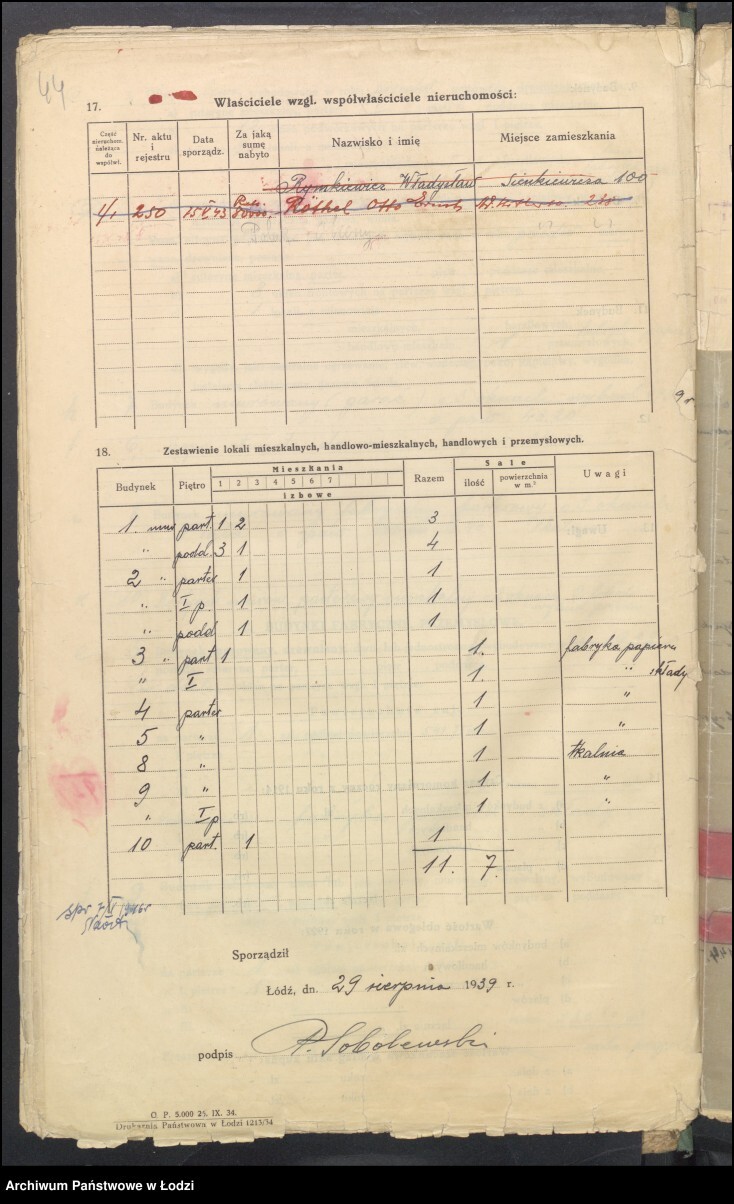 44
17. Właściciele wzgl. współwłaściciele nieruchomości:
Część nieruchom. należąca do współwł. Nr. aktu i rejestru Data sporządz. Za jaką sumę nabyto Nazwisko i imię Miejsce zamieszkania
Rymkiewicz Władysław Sienkiewicza 100
1/1 250 15 V. 43 Röthel Otto Ernst
18. Zestawienie lokali mieszkalnych, handlowo-mieszkalnych, handlowych i przemysłowych.
Budynek Piętro Mieszkania Razem Sale Uwagi
1 2 3 4 5 6 7 ilość powierzchnia w m.²
izbowe
1. mur part. 1 2 3
" podd. 3 1 4
2 " parter 1 1
" I p. 1 1
" podd 1 1
3 " part 1 1. fabryka papieru
" I 1. " składy
4 parter 1 "
5 " 1 "
8 " 1 tkalnia
9 " 1 "
" I p 1 "
10 part. 1 1
11. 7.
spr 7/V 1946r
Sporządził
Łódź, dn. 29 sierpnia 1939 r.
podpis P. Sobolewski
O. P. 5.000 25. IX. 34.
Drukarnia Państwowa w Łodzi 1213/34
Archiwum Państwowe w Łodzi